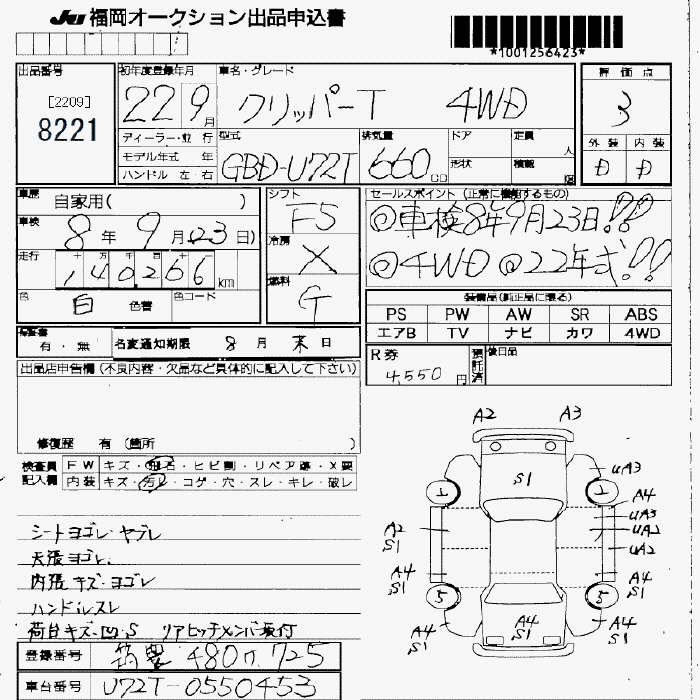 JU 福岡オークション出品申込書
*1001256423*
出品番号
[2209]
8221
初年度登録年月
22 9月
車名・グレード
クリッパーT 4WD
評価点
3
外装 内装
D D
ディーラー・並行
モデル年式 年
ハンドル 左 右
型式
GBD-U72T
排気量
660 CC
ドア
形状
定員 人
積載 kg
車歴
自家用( )
車検
8年 9月 23日)
走行
十 万 千 百 十
140,266 km
色
白 色替
色コード
シフト
F5
冷房
X
燃料
G
セールスポイント (正常に機能するもの)
◎車検8年9月23日!!
◎4WD ◎22年式!!
装備品(純正品に限る)
PS PW AW SR ABS
エアB TV ナビ カワ 4WD
保証書
有・無
名変通知期限 8月末日
R券
4,550円
預託済
後日品
出品店申告欄(不良内容・欠品など具体的に記入して下さい)
修復歴 有 (箇所 )
検査員
記入欄
FW キズ・飛石・ヒビ割・リペア跡・X要
内装 キズ・汚レ・コゲ・穴・スレ・キレ・破レ
シートヨゴレ・ヤブレ
天張ヨゴレ
内張キズ・ヨゴレ
ハンドルスレ
荷台キズ・凹・S リアヒッチメンバ取付
登録番号
筑豊 480 725
車台番号
U72T-0550453
A2 A3
S1
UA3
A4
UA3
UA2
UA2
A2
S1
A4
S1
A4
S1
A4
S1
A4
S1
A4
S1
1 1
5 5